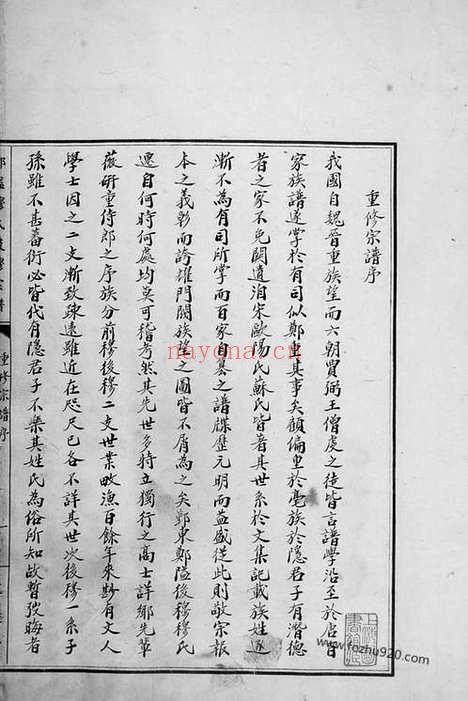 重修宗譜序
我國自魏晉重族望而六朝賈弼王僧虔之徒皆言譜學沿至於唐百
家族譜遂掌於有司似鄭重其事矣顧偏重於豪族於隱君子有潛德
者之家不免闕遺洎宋歐陽氏蘇氏皆著其世系於文集記載族姓遂
漸不為有司所掌而百家自纂之譜牒歷元明而益盛從此則敬宗報
本之義彰而誇耀門閥族望之圖皆不屑為之矣鄞東鄭隘後穆穆氏
遷自何時何處均莫可稽考然其先世多特立獨行之高士詳鄉先輩
薇研童侍郎之序族分前穆後穆二支世業畋漁百餘年來尠有文人
學士因之二支漸致疎遠雖近在咫尺已各不詳其世次後穆一系子
孫雖不甚蕃衍必皆代有隱君子不樂其姓氏為俗所知故暫弢晦者
重修宗譜序
nayona.cn
www.fozhu920.com